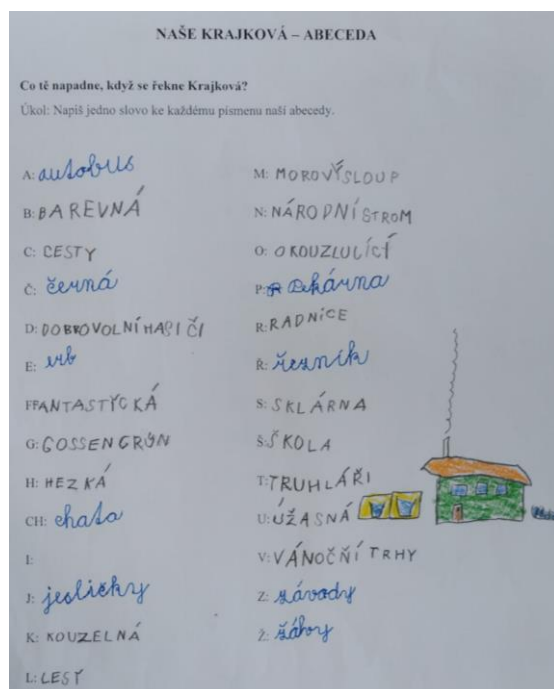 NAŠE KRAJKOVÁ – ABECEDA
Co tě napadne, když se řekne Krajková?
Úkol: Napiš jedno slovo ke každému písmenu naší abecedy.
A: autobus
B: BAREVNÁ
C: CESTY
Č: černá
D: DOBROVOLNÍ HASIČI
E: erb
F: FANTASTYCKÁ
G: GOSSENGRÜN
H: HEZKÁ
CH: chata
I:
J: jesličky
K: KOUZELNÁ
L: LESY
M: MOROVÝ SLOUP
N: NÁRODNÍ STROM
O: OKOUZLUÍCÍ
P: pekárna
R: RADNICE
Ř: řezník
S: SKLÁRNA
Š: ŠKOLA
T: TRUHLÁŘI
U: ÚŽASNÁ
V: VÁNOČNÍ TRHY
Z: závody
Ž: žáby